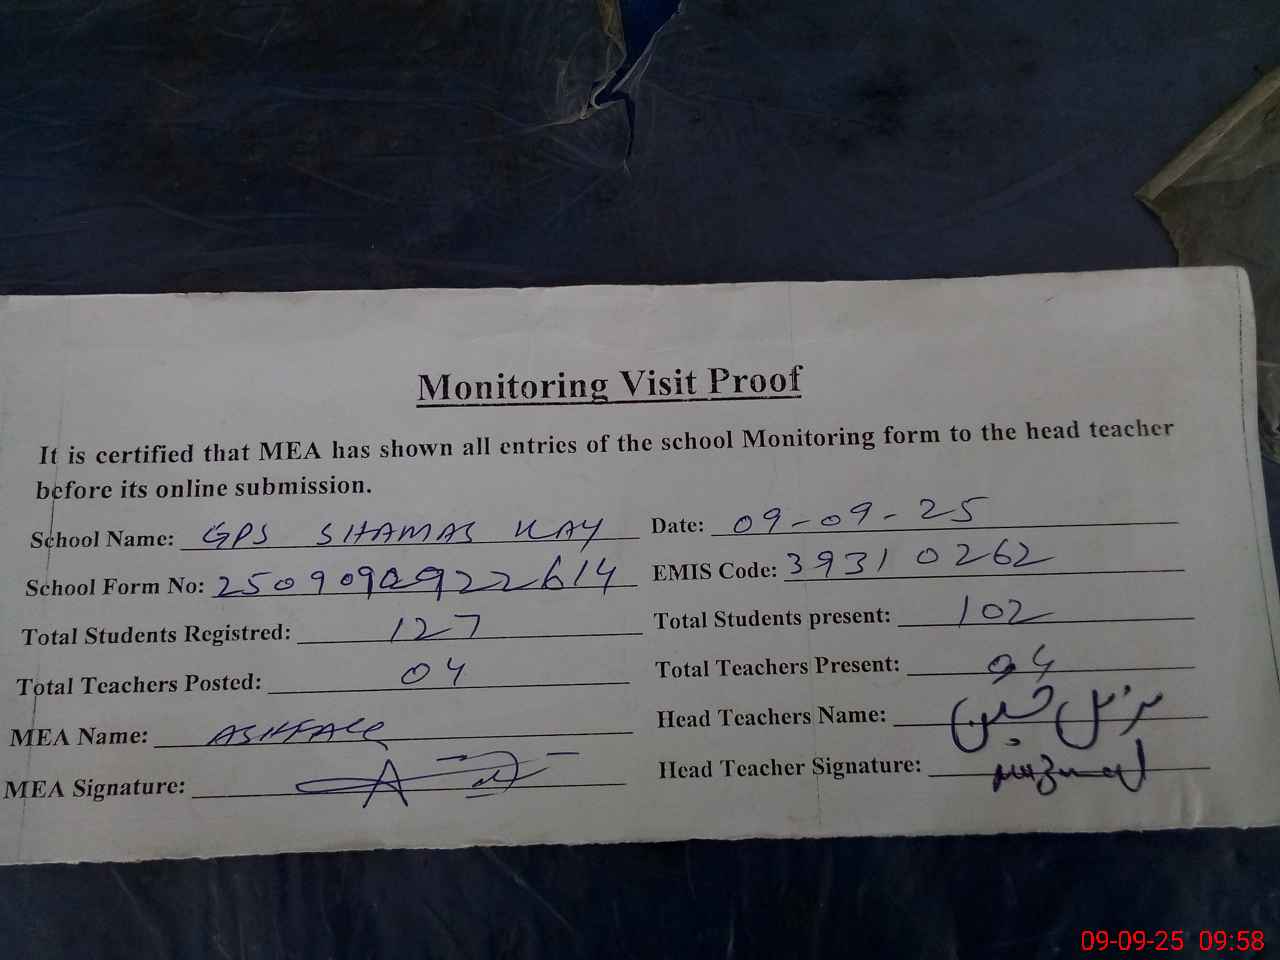 Monitoring Visit Proof
It is certified that MEA has shown all entries of the school Monitoring form to the head teacher
before its online submission.
School Name: GPS SHAMAS KAY Date: 09-09-25
School Form No: 2509090922614 EMIS Code: 39310262
Total Students Registred: 127 Total Students present: 102
Total Teachers Posted: 04 Total Teachers Present: 04
MEA Name: ASHFAQ Head Teachers Name: مزمل حسین
MEA Signature: Head Teacher Signature: muzmal
09-09-25 09:58